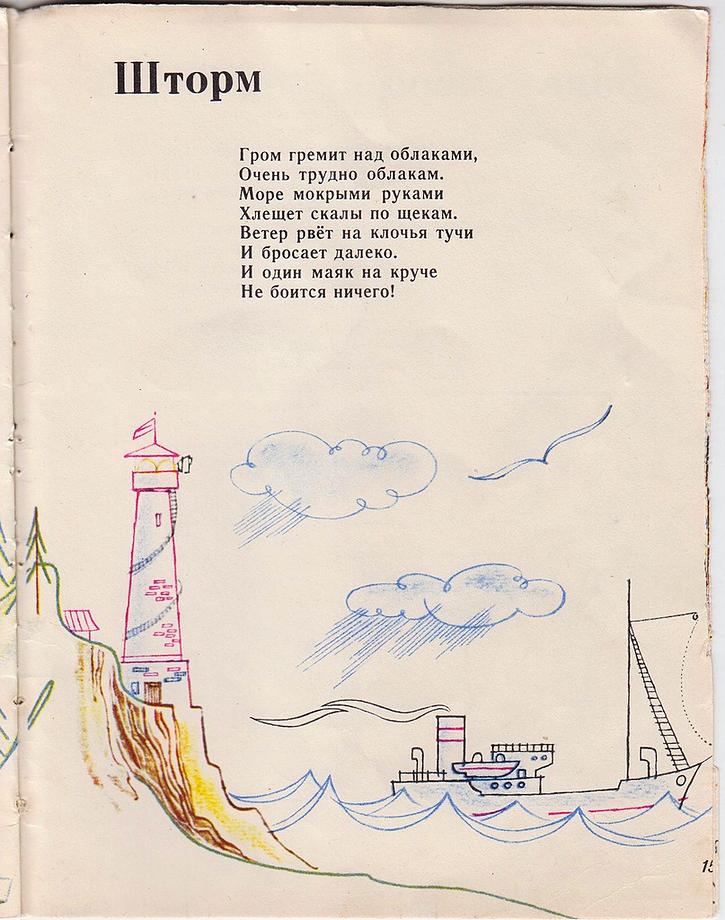 Шторм
Гром гремит над облаками,
Очень трудно облакам.
Море мокрыми руками
Хлещет скалы по щекам.
Ветер рвёт на клочья тучи
И бросает далеко.
И один маяк на круче
Не боится ничего!